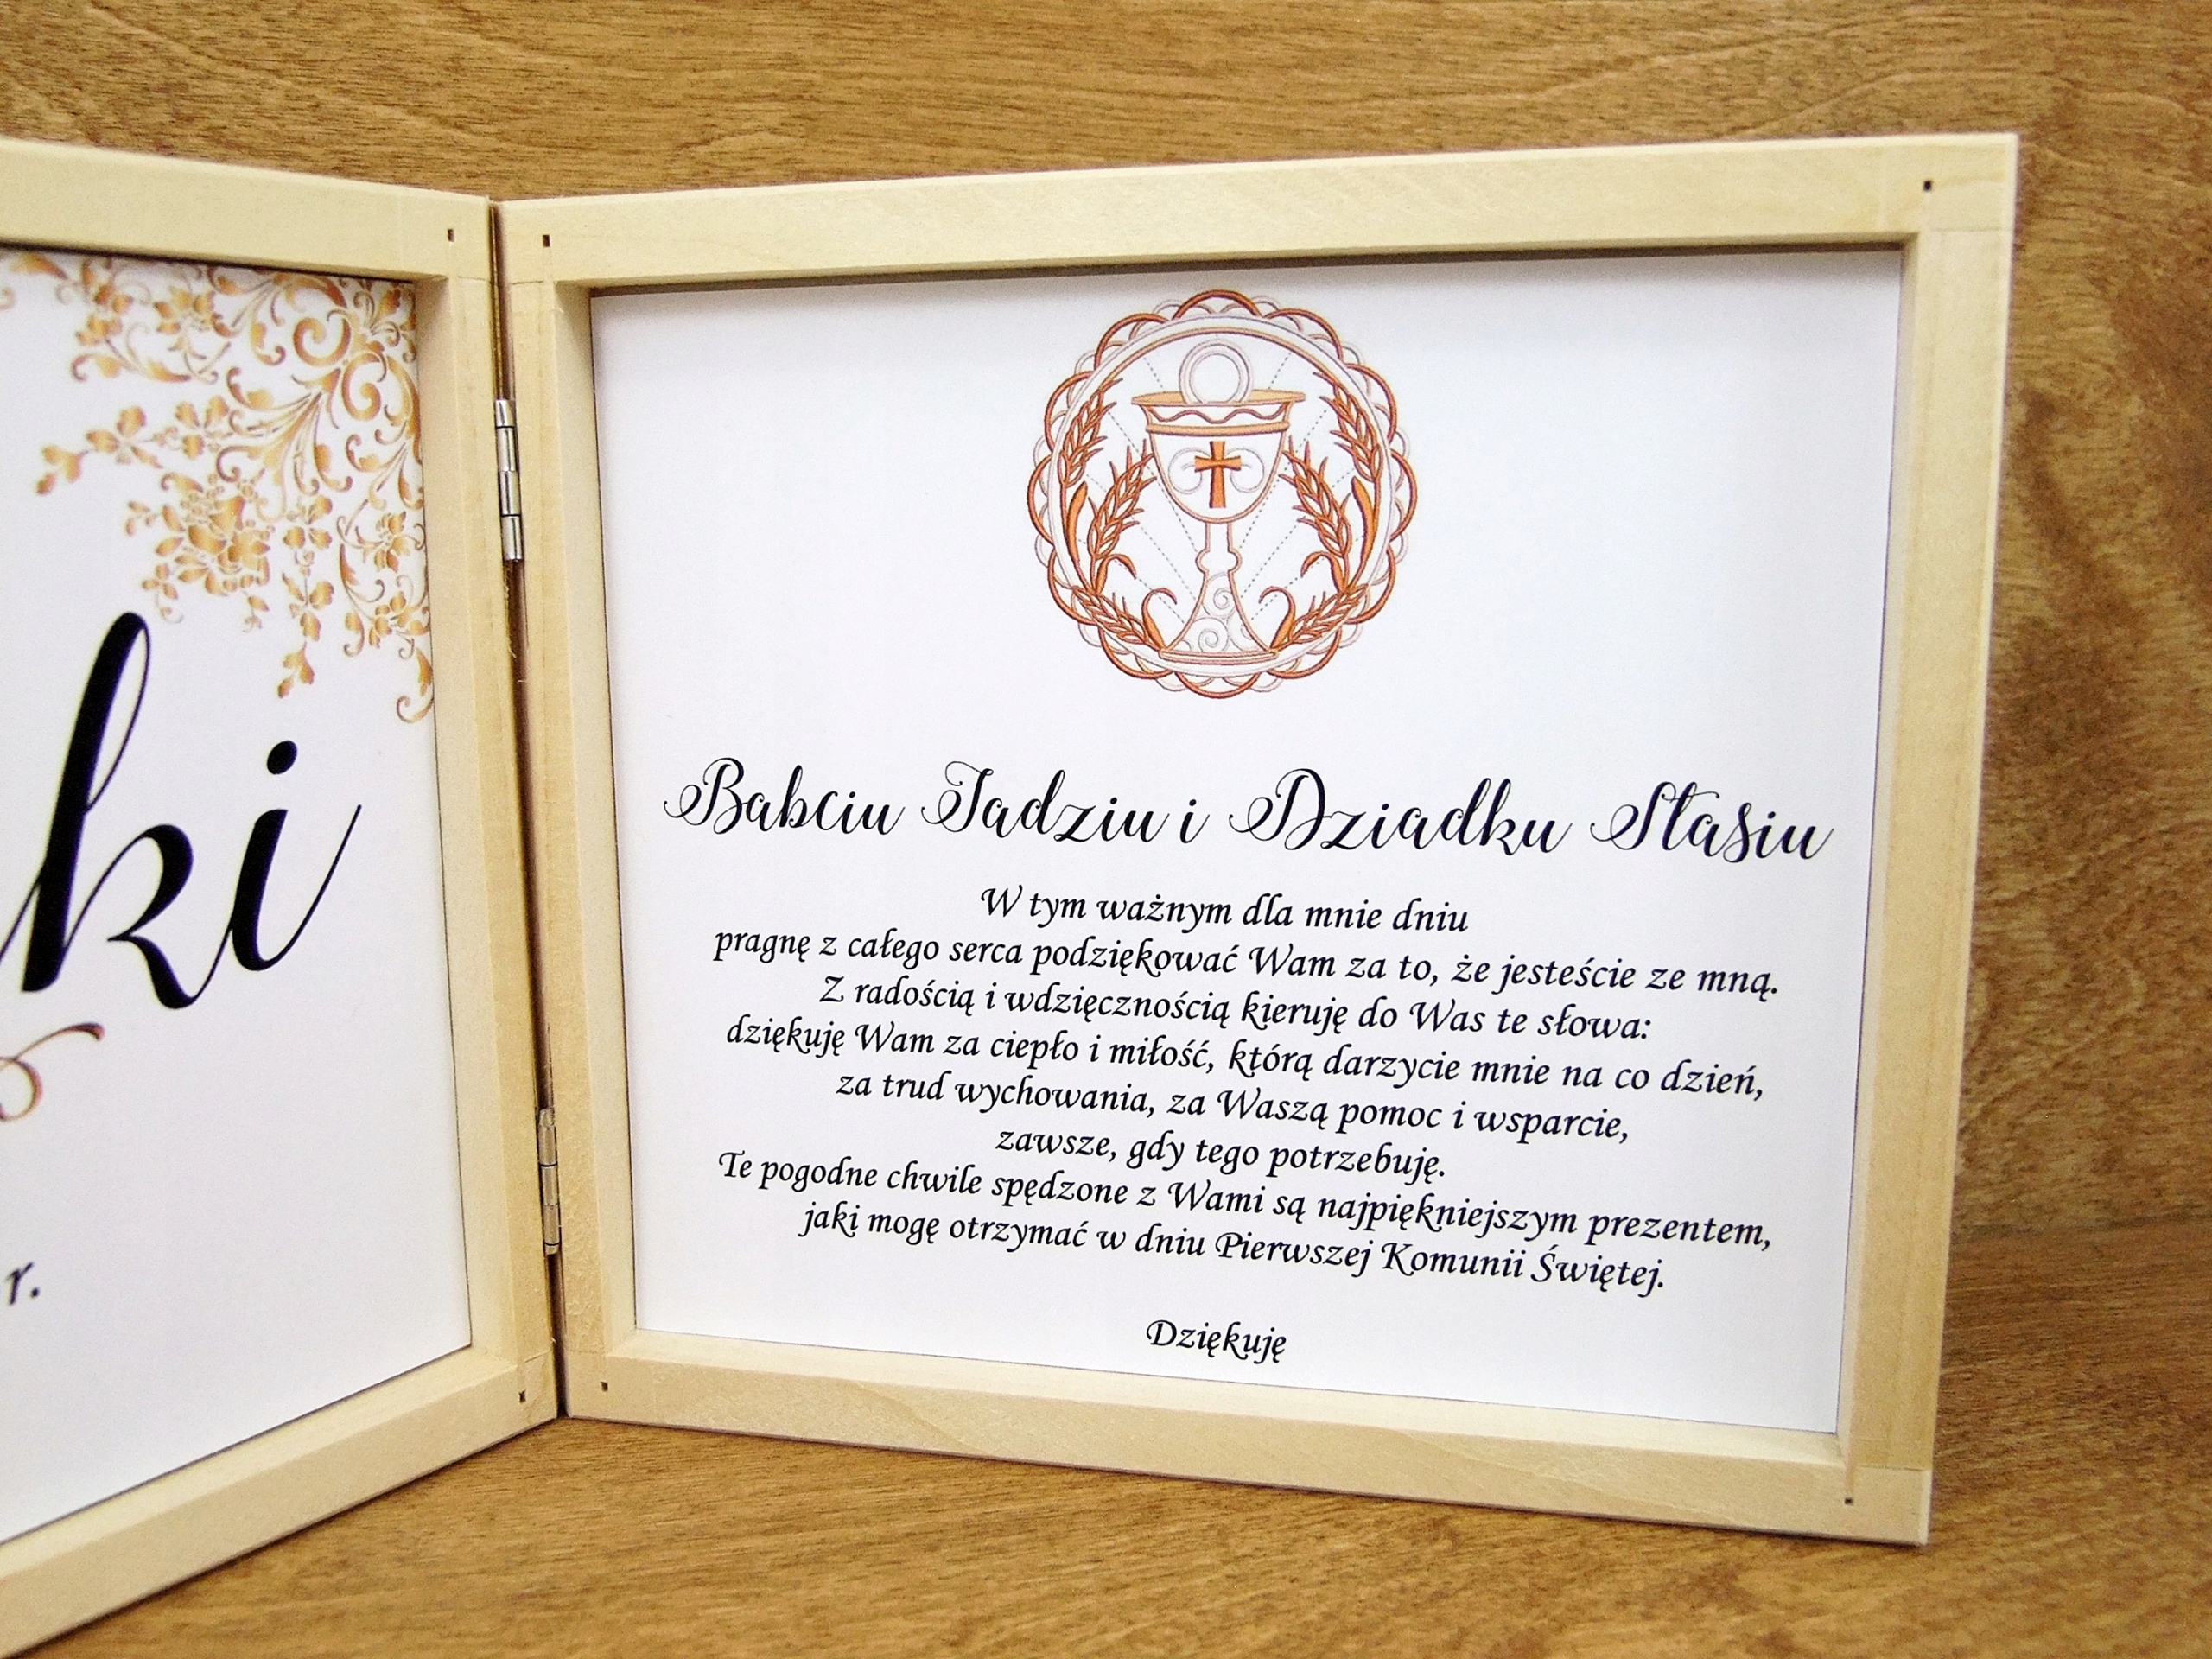 ki
r.
Babciu Jadziu i Dziadku Stasiu
W tym ważnym dla mnie dniu
pragnę z całego serca podziękować Wam za to, że jesteście ze mną.
Z radością i wdzięcznością kieruję do Was te słowa:
dziękuję Wam za ciepło i miłość, którą darzycie mnie na co dzień,
za trud wychowania, za Waszą pomoc i wsparcie,
zawsze, gdy tego potrzebuję.
Te pogodne chwile spędzone z Wami są najpiękniejszym prezentem,
jaki mogę otrzymać w dniu Pierwszej Komunii Świętej.
Dziękuję